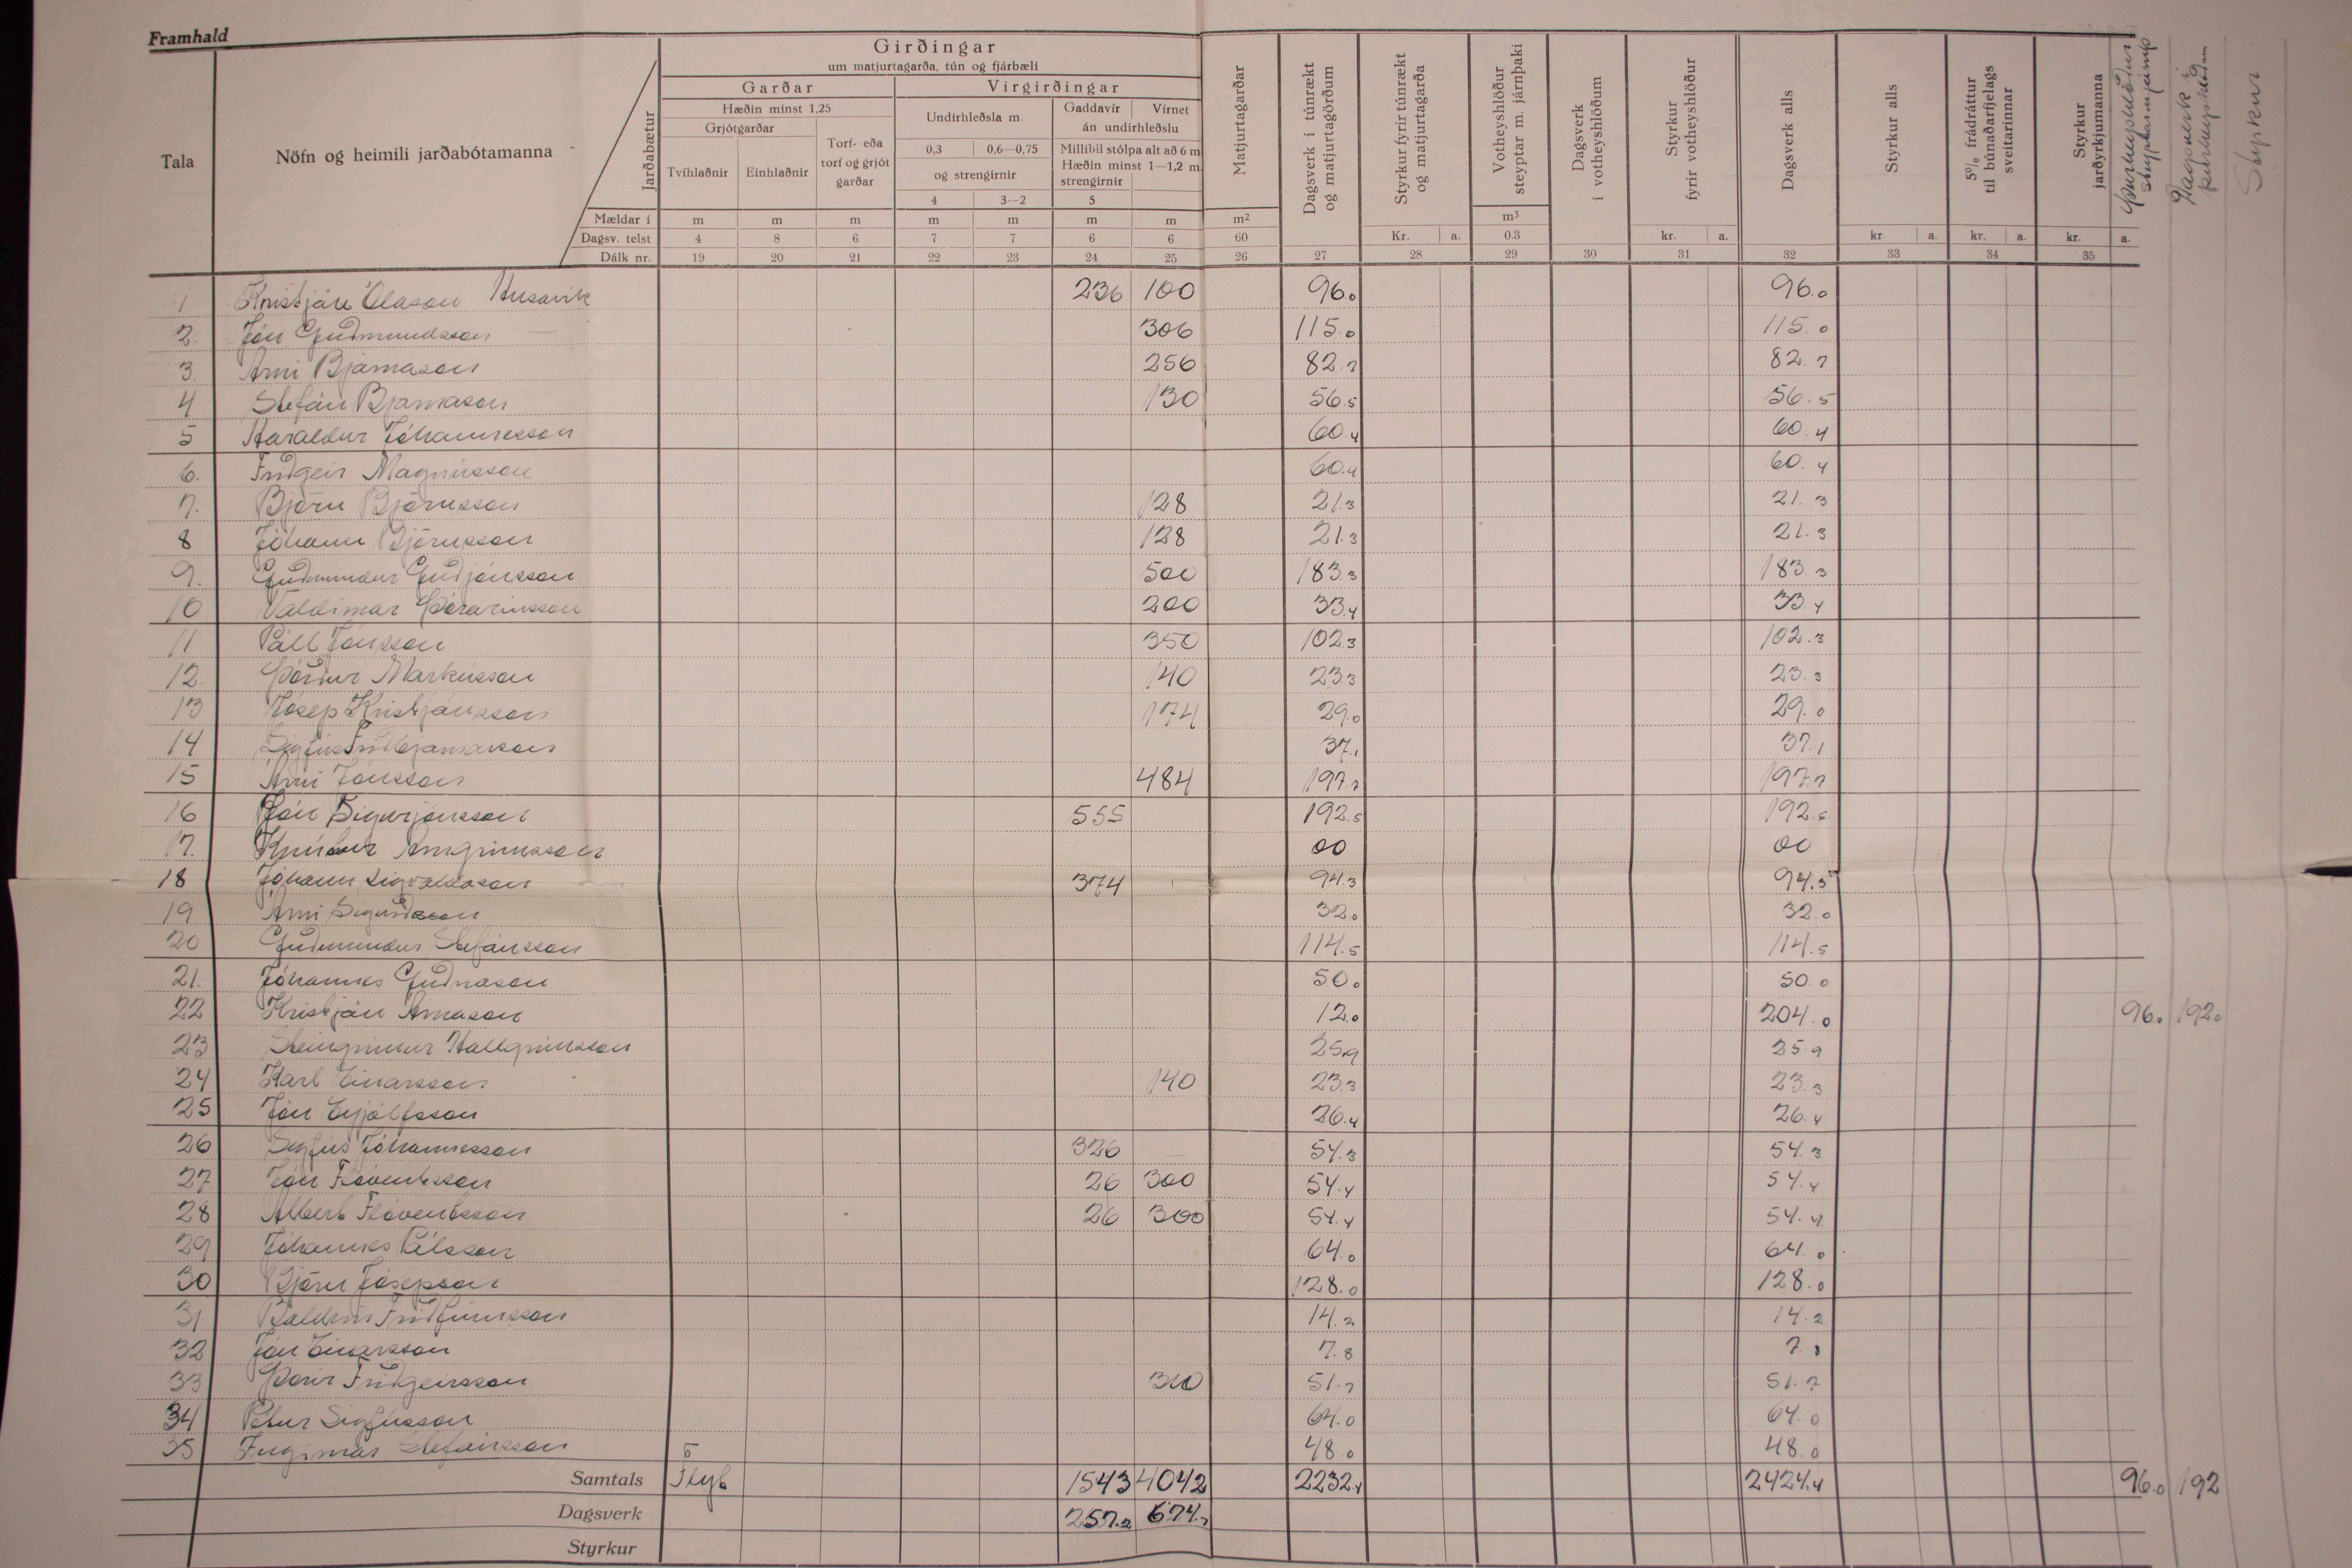 Framhald
Tala
Nöfn og heimili jarðabótamanna
Jarðabætur
Mældar í
Dagsv. telst
Dálk nr.
Girðingar
um matjurtagarða, tún og fjárbæli
Garðar
Virgirðingar
Hæðin minst 1,25
Grjótgarðar
Tvíhlaðnir
Einhlaðnir
Torf- eða
torf og grjót
garðar
Undirhleðsla m.
0,3 0,6—0,75
og strengirnir
4 3--2
Gaddavír Vírnet
án undirhleðslu
Millibil stólpa alt að 6 m
Hæðin minst 1—1,2 m.
strengirnir
5
Matjurtagarðar
Dagsverk í túnrækt
og matjurtagörðum
Styrkur fyrir túnrækt
og matjurtagarða
Votheyshlöður
steyptar m. járnþaki
Dagsverk
í votheyshlöðum
Styrkur
fyrir votheyshlöður
Dagsverk alls
Styrkur alls
5% frádráttur
til búnaðarfjelags
sveitarinnar
Styrkur
jarðyrkjumanna
Þurheyshlöður
Dagsverk í
þurheyshlöðum
Styrkur
m m m m m m m m² m³
4 8 6 7 7 6 6 60 Kr. a. 0.3 kr. a. kr a. kr. a. kr. a.
19 20 21 22 23 24 25 26 27 28 29 30 31 32 33 34 35
1 Kristján Ólason Húsavík 236 100 96.0 96.0
2. Jón Guðmundsson 306 115.0 115.0
3 Árni Bjarnason 256 82.7 82.7
4 Stefán Bjarnason 130 56.5 56.5
5 Haraldur Jóhannesson 60.4 60.4
6. Friðgeir Magnússon 60.4 60.4
7. Björn Björnsson 128 21.3 21.3
8 Jóhann Björnsson 128 21.3 21.3
9. Guðmundur Guðjónsson 500 183.3 183.3
10 Valdimar Þórarinsson 200 33.4 33.4
11 Páll Jónsson 350 102.3 102.3
12. Þórður Markússon 140 23.3 23.3
13 Jósep Kristjánsson 174 29.0 29.0
14 Sigfús Friðbjarnarson 37.1 37.1
15 Árni Jónsson 484 197.7 197.7
16 Jón Sigurjónsson 555 192.5 192.5
17. Knútur Arngrímsson 00 00
18 Jóhann Sigvaldason 374 94.3 94.3
19 Árni Sigurðsson 32.0 32.0
20 Guðmundur Stefánsson 114.5 114.5
21. Jóhannes Guðnason 50.0 50.0
22 Kristján Árnason 12.0 204.0 96.0 192.0
23 Steingrímur Hallgrímsson 25.9 25.9
24 Karl Einarsson 140 23.3 23.3
25 Jón Eyjólfsson 26.4 26.4
26 Sigfús Jóhannesson 326 54.3 54.3
27 Jón Flóventsson 26 300 54.4 54.4
28 Albert Flóventsson 26 300 54.4 54.4
29 Jóhannes Pálsson 64.0 64.0
30 Björn Jósepsson 128.0 128.0
31 Baldvin Friðfinnsson 14.2 14.2
32 Jón Einarsson 7.8 7.8
33 Þórir Friðgeirsson 310 51.7 51.7
34 Pétur Sigfússon 64.0 64.0
35 Ingimar Stefánsson 48.0 48.0
Samtals Flyt 1543 4042 2232.4 2424.4 96.0 192
Dagsverk 257.2 674.7
Styrkur